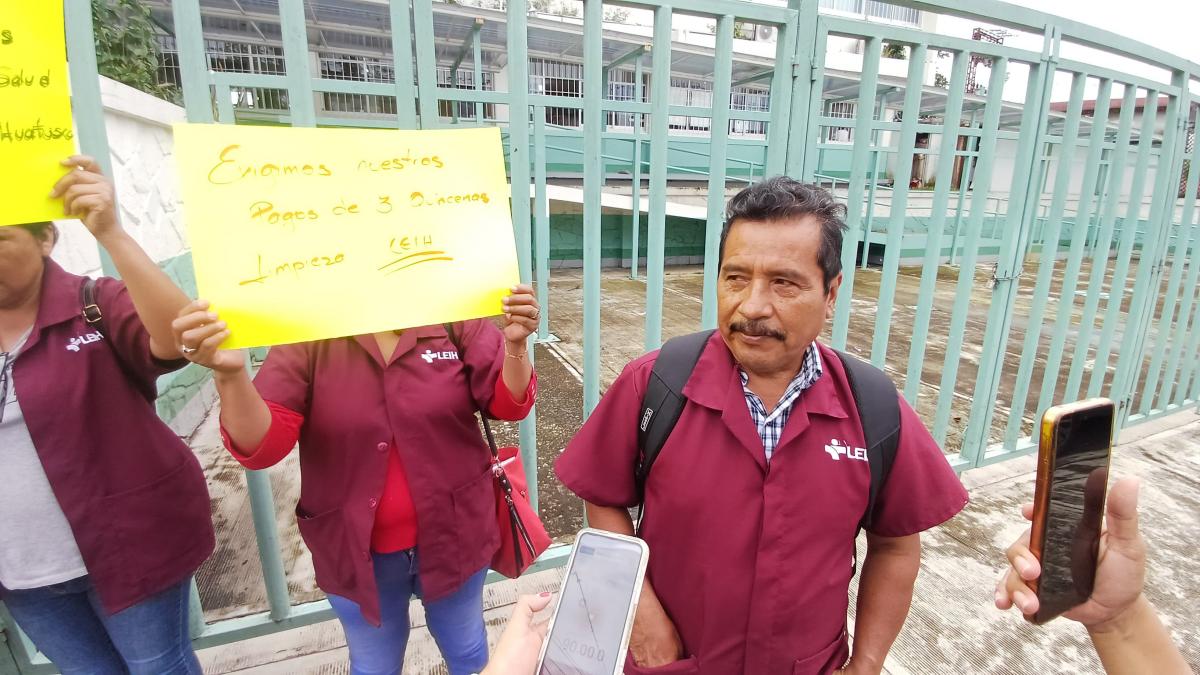 s
Salud
Huatusco
Exigimos nuestros
Pagos de 3 Quincenas
Limpieza LEIH
LEIH
LEIH
LEIH
00:00.0